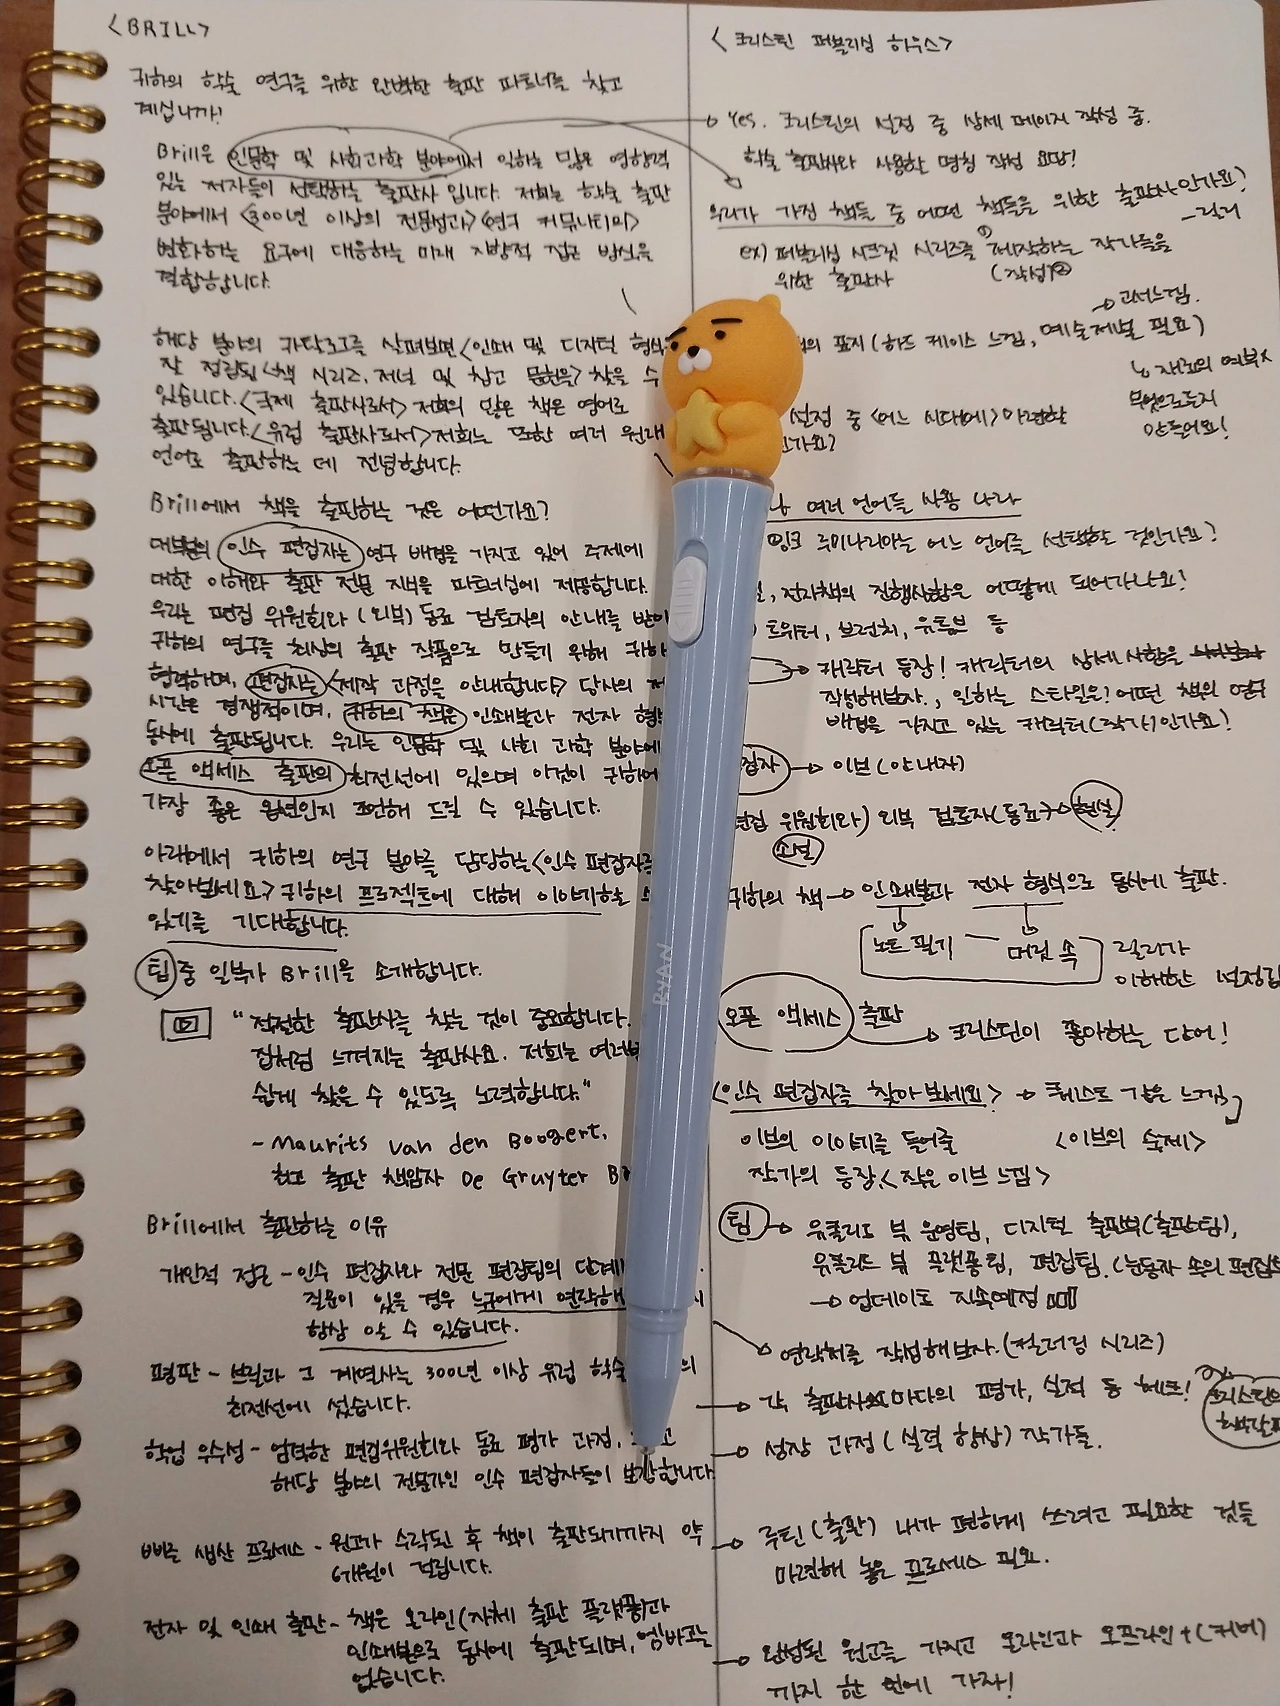 <BRILL>
귀하의 학술 연구를 위한 완벽한 출판 파트너를 찾고
계십니까?
Brill은 인문학 및 사회과학 분야에서 일하는 많은 영향력
있는 저자들이 선택하는 출판사 입니다. 저희는 학술 출판
분야에서 <300년 이상의 전문성과> <연구 커뮤니티의>
변화하는 요구에 대응하는 미래 지향적 접근 방식을
결합합니다.
해당 분야의 카탈로그를 살펴보면 <인쇄 및 디지털 형식
잘 정립된 <책 시리즈, 저널 및 참고 문헌을> 찾을 수
있습니다. <국제 출판사로서> 저희의 많은 책은 영어로
출판됩니다. <유럽 출판사로서> 저희는 또한 여러 원래
언어로 출판하는 데 전념합니다.
Brill에서 책을 출판하는 것은 어떤가요?
대부분의 인수 편집자는 연구 배경을 가지고 있어 주제에
대한 이해와 출판 전문 지식을 파트너십에 제공합니다.
우리는 편집 위원회와 (외부) 동료 검토자의 안내를 받아
귀하의 연구를 최상의 출판 작품으로 만들기 위해 귀하
협력하며, 편집자는 <제작 과정을 안내합니다> 당사의 제
시간은 경쟁적이며, 귀하의 책은 인쇄본과 전자 형
동시에 출판됩니다. 우리는 인문학 및 사회 과학 분야에
오픈 액세스 출판의 최전선에 있으며 이것이 귀하에
가장 좋은 옵션인지 조언해 드릴 수 있습니다.
아래에서 귀하의 연구 분야를 담당하는 <인수 편집자를
찾아보세요> 귀하의 프로젝트에 대해 이야기할 수
있기를 기대합니다.
팀 중 일부가 Brill을 소개합니다.
"적절한 출판사를 찾는 것이 중요합니다.
집처럼 느껴지는 출판사요. 저희는 여러분
쉽게 찾을 수 있도록 노력합니다."
- Maurits van den Boogert,
최고 출판 책임자 De Gruyter Br
Brill에서 출판하는 이유
개인적 접근 - 인수 편집자와 전문 편집팀의 단계
질문이 있을 경우 누구에게 연락해
항상 알 수 있습니다.
평판 - 브릴과 그 계열사는 300년 이상 유럽 학술 의
최전선에 섰습니다.
학업 우수성 - 엄격한 편집위원회와 동료 평가 과정, 고
해당 분야의 전문가인 인수 편집자들이 보장합니다.
빠른 생산 프로세스 - 원고가 수락된 후 책이 출판되기까지 약
6개월이 걸립니다.
전자 및 인쇄 출판 - 책은 온라인(자체 출판 플랫폼)과
인쇄본으로 동시에 출판되며, 엠바고는
없습니다.
<크리스틴 퍼블리싱 하우스>
Yes. 크리스틴의 설정 중 상세 페이지 작성 중.
학술 출판사와 사용한 명칭 작성 요망!
우리가 가진 책들 중 어떤 책들을 위한 출판사인가요?
- 릴리
ex) 퍼블리싱 시크릿 시리즈를 ①제작하는 작가들을
위한 출판사 (작성)②
→ 고서느낌.
의 표지 (하드 케이스 느낌, 예술저널 필요)
↳ 재료의 여부X
무엇으로든지
만들어요!
설정 중 <어느 시대에> 마련할
인가요?
여러 언어들 사용 나라
밍크 루미나리아는 어느 언어를 선택한 것인가요?
전자책의 진행사항은 어떻게 되어가나요?
트위터, 브런치, 유튜브 등
캐릭터 등장! 캐릭터의 상세 사항을
작성해보자., 일하는 스타일은? 어떤 책의 연구
배경을 가지고 있는 캐릭터(작가)인가요?
집자 → 이브 (안내자)
편집 위원회와) 외부 검토자(동료) → 현실
소설
귀하의 책 → 인쇄본과 전자 형식으로 동시에 출판.
노트 필기 — 머릿 속 릴리가
이해한 설정임
오픈 액세스 출판
→ 크리스틴이 좋아하는 단어!
<인수 편집자를 찾아보세요> → 퀘스트 같은 느낌,
이브의 이야기를 들어줄 <이브의 숙제>
작가의 등장. <작은 이브 느낌>
팀 → 유클리드 북 운영팀, 디지털 출판부(출판팀),
유클리드 북 플랫폼팀, 편집팀. (눈동자 속의 편집
→ 업데이트 지속예정
연락처를 작성해보자. (컬러링 시리즈)
각 출판사 마다의 평가, 실적 등 체크!
크리스틴의
성장 과정 (실력 향상) 작가들.
루틴 (출판) 내가 편하게 쓰려고 필요한 것들
마련해 놓은 프로세스 필요.
완성된 원고를 가지고 온라인과 오프라인 + (커버)
까지 한 번에 가자!
RYAN